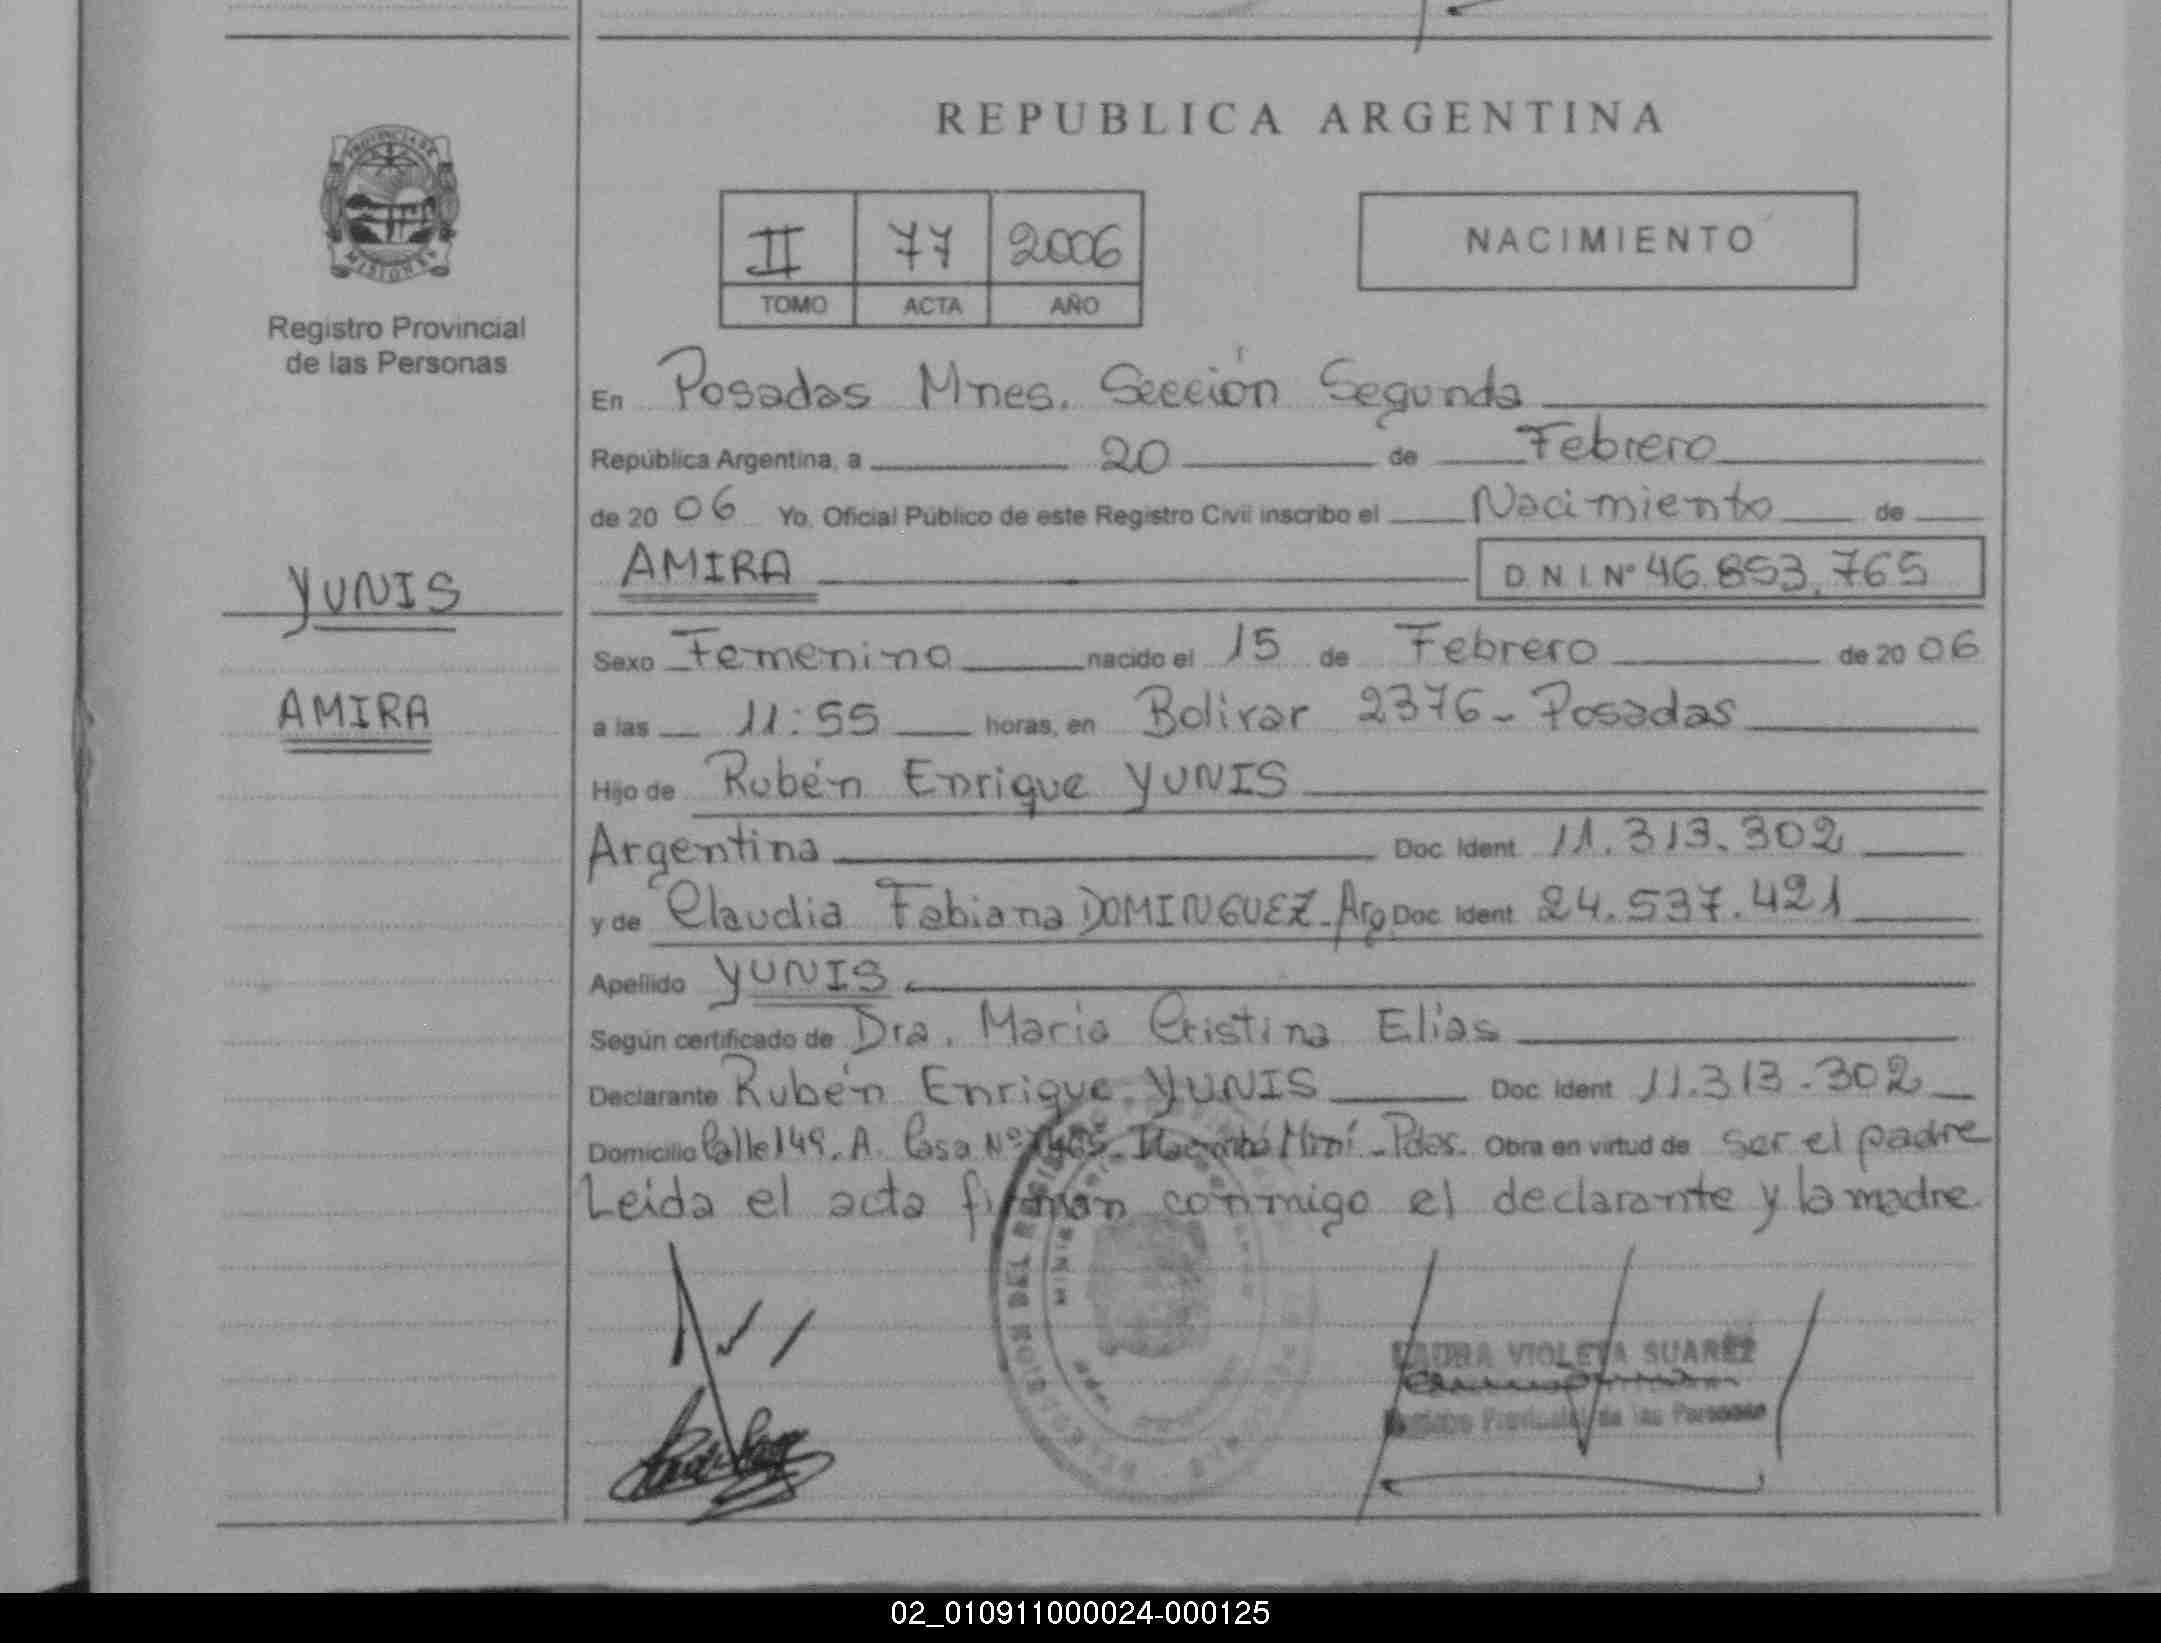 REPUBLICA ARGENTINA
PROVINCIA DE
MISIONES
Registro Provincial
de las Personas
II 77 2006
TOMO ACTA AÑO
NACIMIENTO
En Posadas Mnes. Sección Segunda
República Argentina, a 20 de Febrero
de 2006 Yo, Oficial Público de este Registro Civil inscribo el Nacimiento de
YUNIS
AMIRA
AMIRA D.N.I. Nº 46.853.765
Sexo Femenino nacido el 15 de Febrero de 2006
a las 11:55 horas, en Bolivar 2376 - Posadas
Hijo de Rubén Enrique YUNIS
Argentina Doc. Ident. 11.313.302
y de Claudia Fabiana DOMINGUEZ - Arg Doc. Ident. 24.537.421
Apellido YUNIS
Según certificado de Dra. Maria Cristina Elias
Declarante Rubén Enrique YUNIS Doc. Ident. 11.313.302
Domicilio Calle 149. A. Casa Nº Miní - Pdas. Obra en virtud de ser el padre
Leida el acta firman conmigo el declarante y la madre
LAURA VIOLETA SUAREZ
Registro Provincial de las Personas
02_010911000024-000125